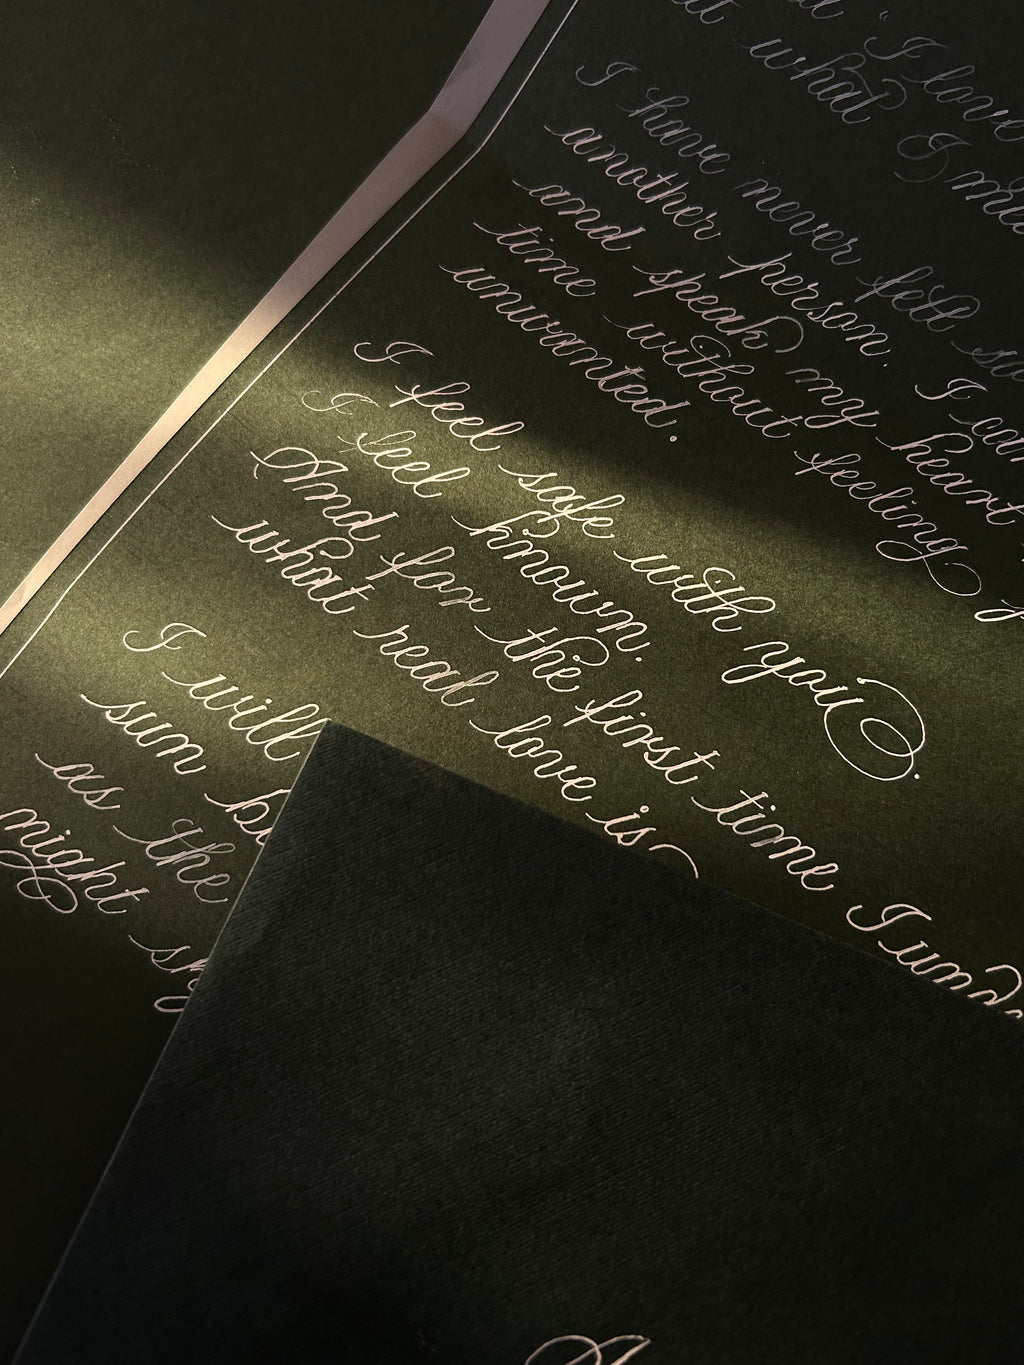 "I love
what I
I have never felt
another person. I
and speak my heart
time without feeling
unwanted.
I feel safe with you.
I feel known.
And for the first time I
what real love is
I will
sun
as the
night